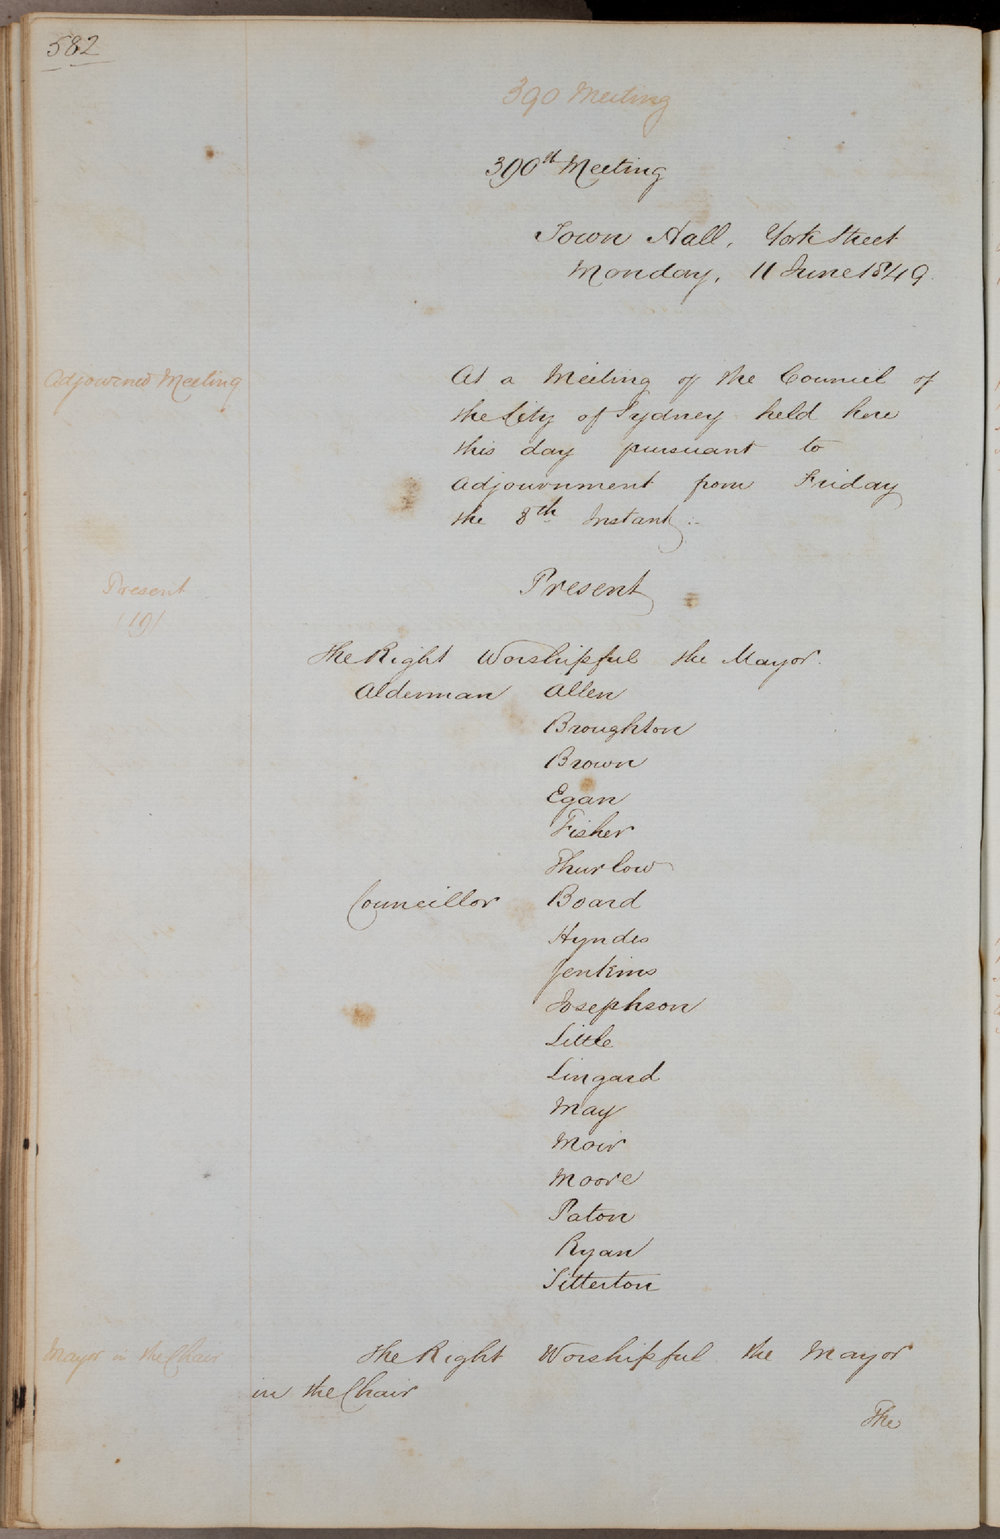 582
390 Meeting
390th Meeting
Town Hall, York Street
Monday, 11 June 1849
Adjourned Meeting
At a Meeting of the Council of
the City of Sydney held here
this day pursuant to
adjournment from Friday
the 8th Instant :-
Present
(19)
Present
The Right Worshipful the Mayor.
Alderman Allen
Broughton
Brown
Egan
Fisher
Thurlow
Councillor Board
Hyndes
Jenkins
Josephson
Little
Lingard
May
Moir
Moore
Paton
Ryan
Titterton
Mayor in the Chair
The Right Worshipful the Mayor
in the Chair
The